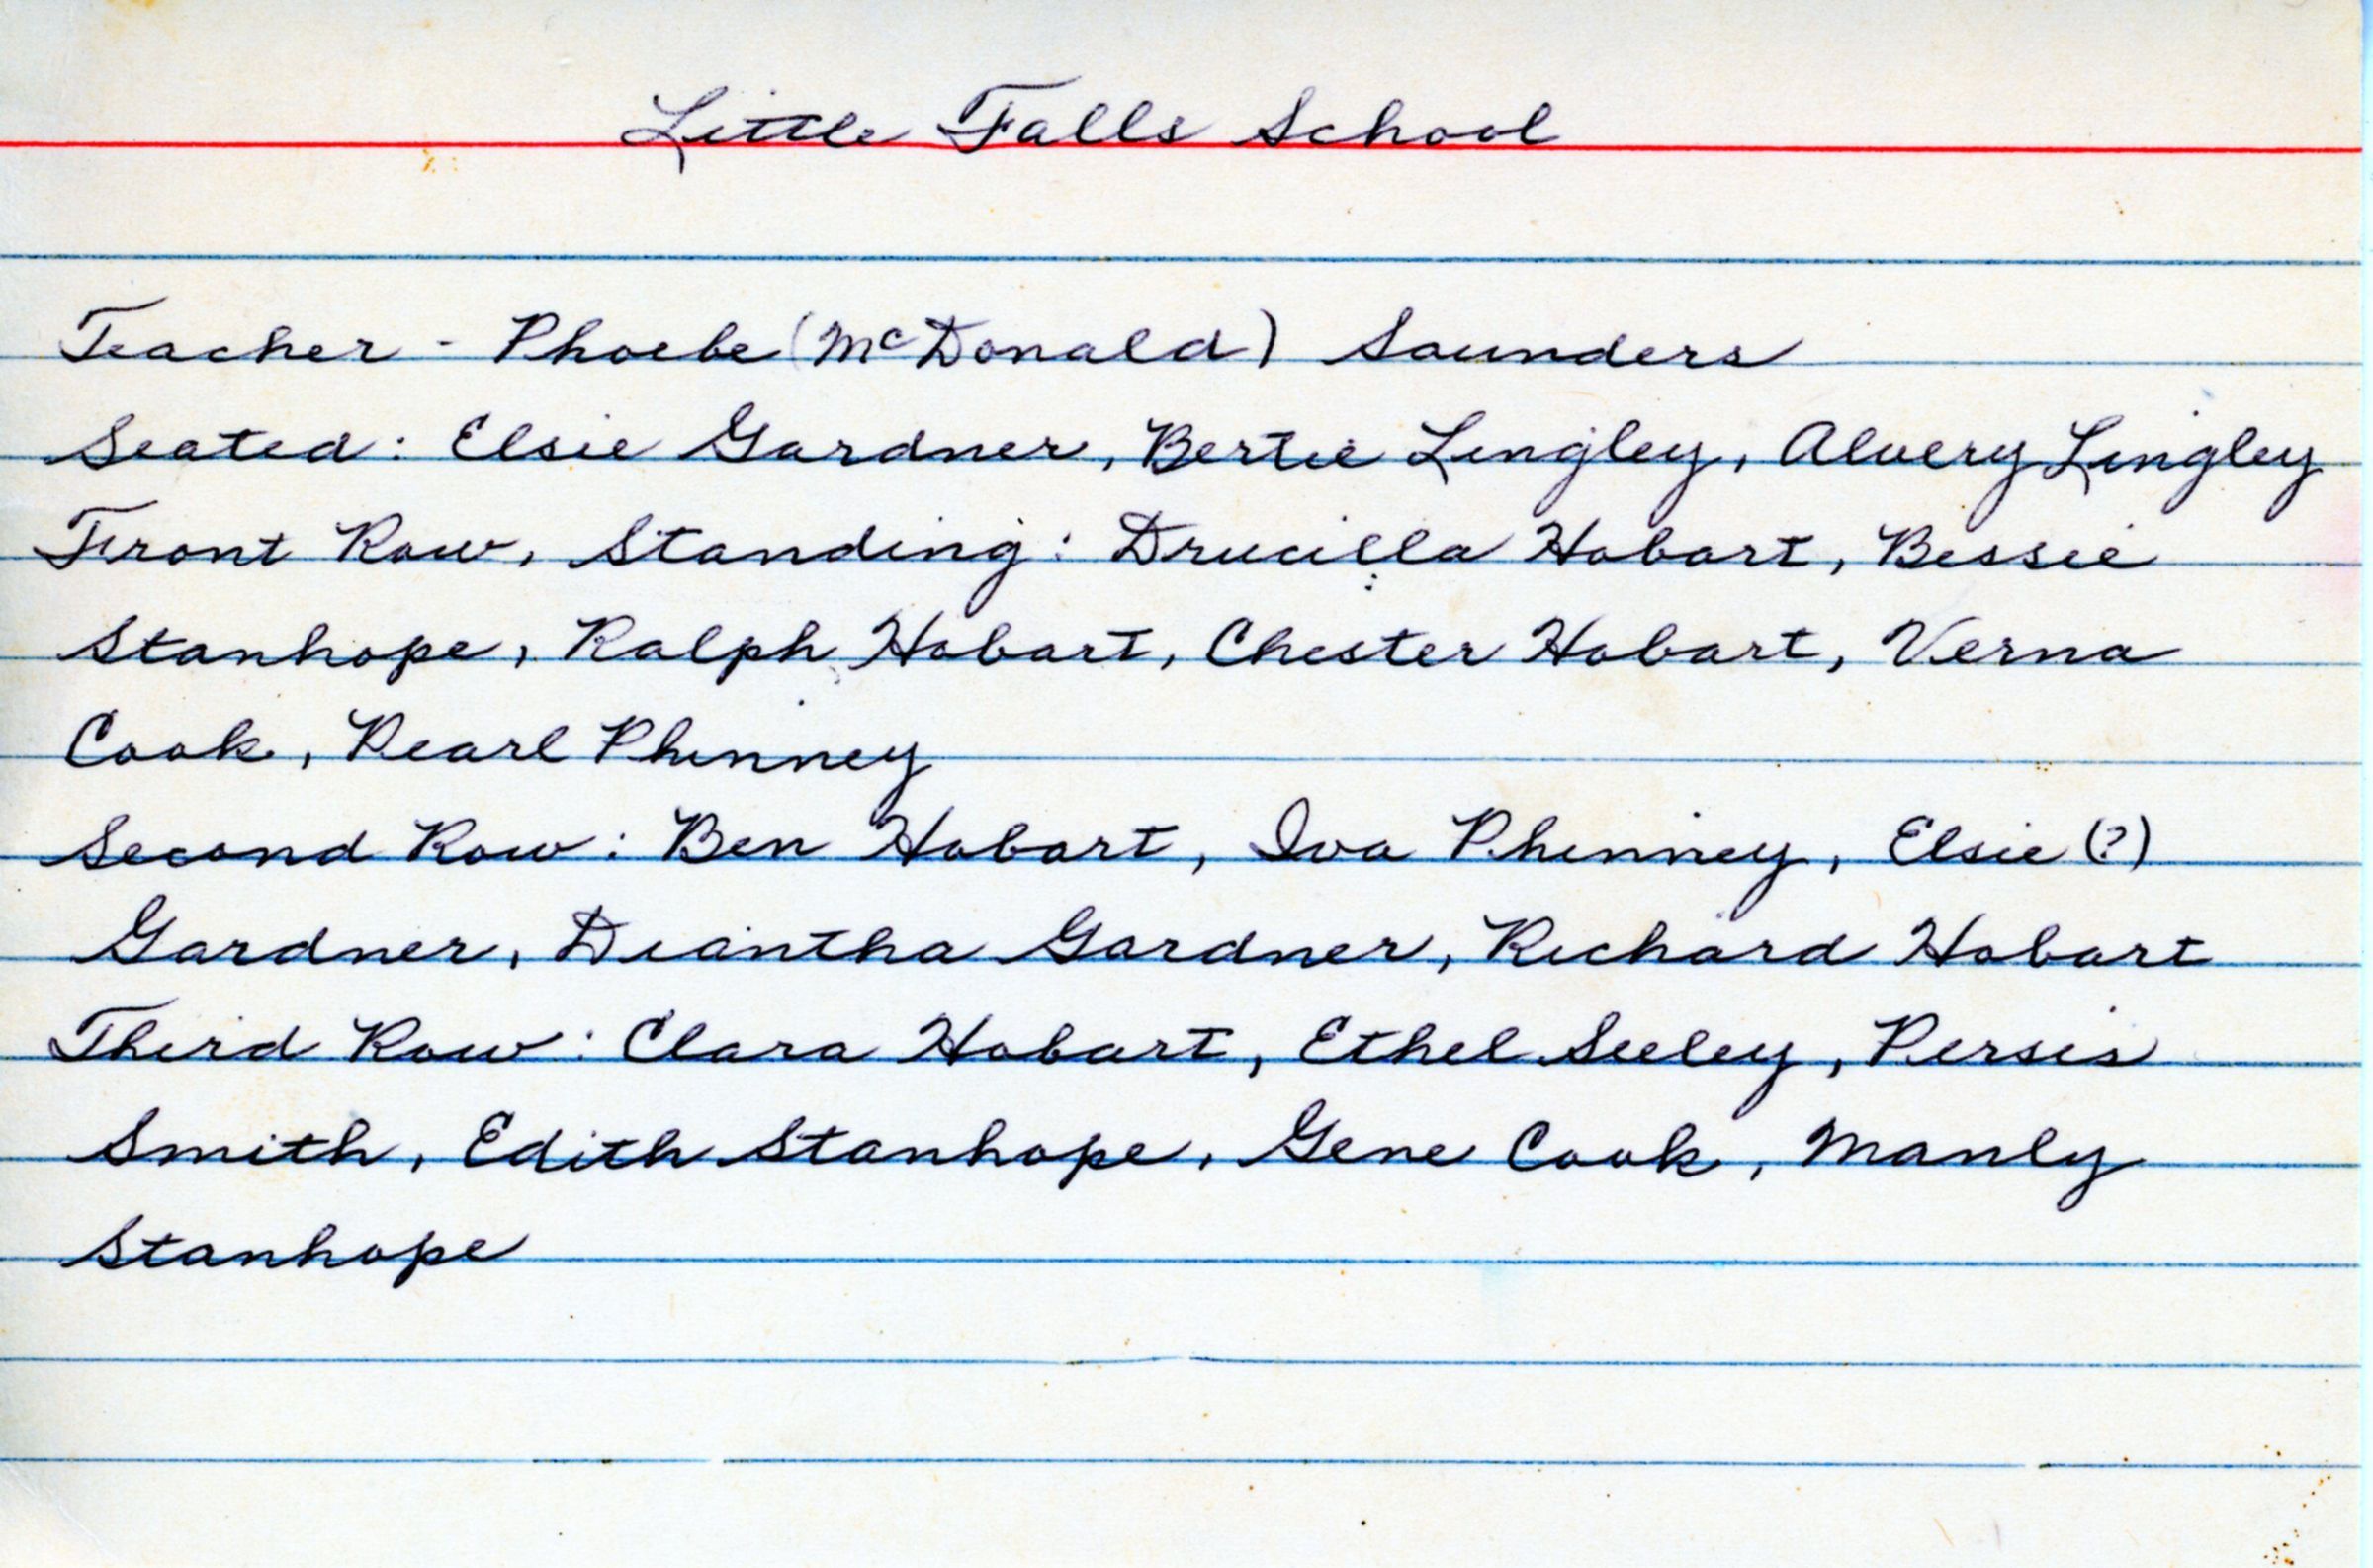 Little Falls School
Teacher - Phoebe (McDonald) Saunders
Seated: Elsie Gardner, Bertie Lingley, Alvery Lingley
Front Row, Standing: Drucilla Hobart, Bessie
Stanhope, Ralph Hobart, Chester Hobart, Verna
Cook, Pearl Phinney
Second Row: Ben Hobart, Iva Phinney, Elsie (?)
Gardner, Diantha Gardner, Richard Hobart
Third Row: Clara Hobart, Ethel Seeley, Persis
Smith, Edith Stanhope, Gene Cook, Manly
Stanhope